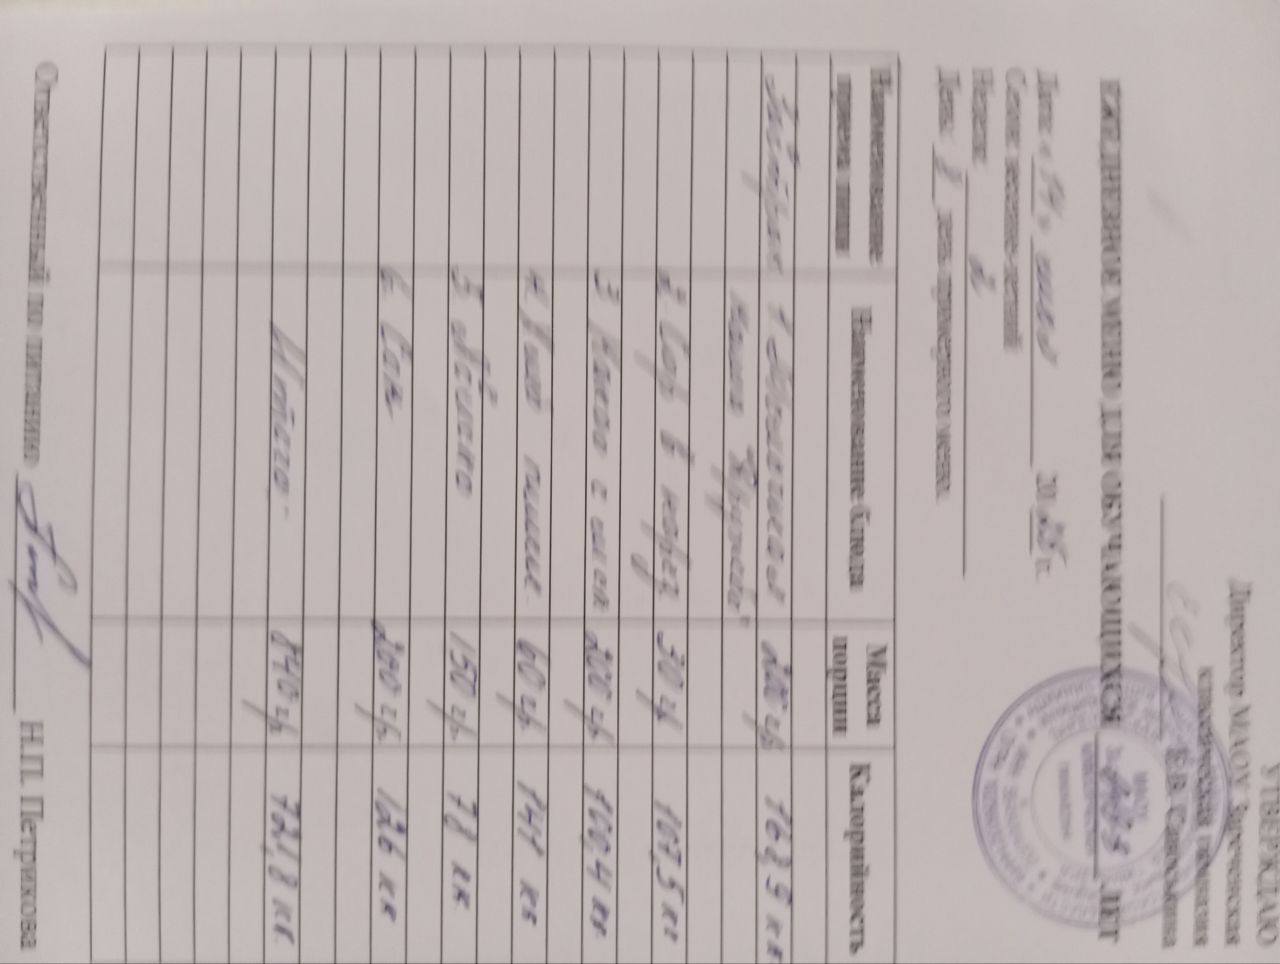 УТВЕРЖДАЮ
Директор МАОУ Зареченская
классическая гимназия
Е.В Скворцова
ЕЖЕДНЕВНОЕ МЕНЮ ДЛЯ ОБУЧАЮЩИХСЯ ЛЕТ
Дата « 14 » 20 25 г.
Сезон: весенне-летний
Неделя: 2
День: день примерного меню.
Наименование приема пищи Наименование блюда Масса порции Калорийность
1 Молочная 200 гр 168,9 кк
каша "Дружба"
2 Сыр в нарез 30 гр 107,5 кк
3 Какао с мол 200 гр 100,4 кк
4. Хлеб пшен. 60 гр 141 кк
5 Яблоко 150 гр. 78 кк
6. Сок 200 гр 126 кк
Итого: 840 гр 721,8 кк
Ответственный по питанию Н.П. Петрикова